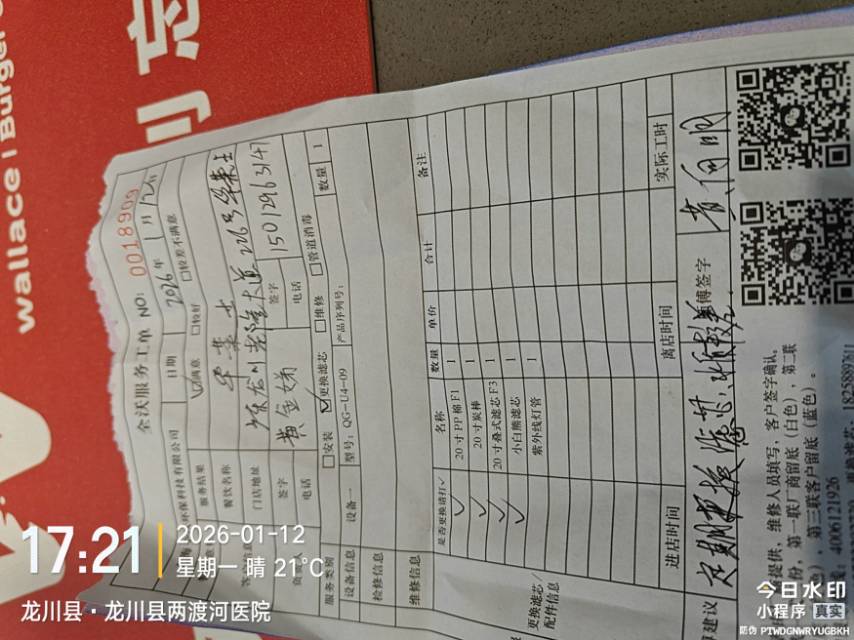 wallace | Burger
全沃服务工单 NO: 0018909
环保科技有限公司 日期 2026年1月12日
服务结果 ☑满意 □较好 □较差不满意
餐饮名称 华莱士
门店地址 龙川老隆大道226号华莱士
签字 黄金娣 签字
电话 电话 15012963147
服务类别 □安装 ☑更换滤芯 □维修 □管道消毒
设备信息 设备一 型号: QG-U4-09 产品序列号: 数量 1
检修信息
维修信息
更换滤芯/配件信息
是否更换请打✓ 名称 数量 单价 合计 备注
✓ 20寸PP棉F1 1
✓ 20寸炭棒 1
✓ 20寸叠式滤芯F3 1
✓ 小白熊滤芯 1
紫外线灯管 1
进店时间 离店时间 实际工时
建议 定期更换滤芯
师傅签字 黄向明
提供, 维修人员填写, 客户签字确认。
份, 第一联厂商留底 (白色), 第二联
), 第三联客户留底 (蓝色)。
: 4006121926
17:21
2026-01-12
星期一 晴 21℃
龙川县·龙川县两渡河医院
今日水印
小程序 真实
防伪 PTWDGNWRYUGBKH